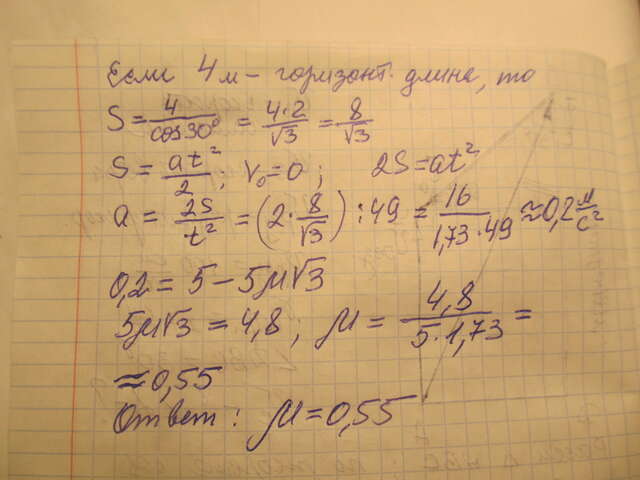 Если 4 м - горизонт. длине, то
S = 4/cos30° = 4·2/√3 = 8/√3
S = at²/2 ; V₀ = 0 ; 2S = at²
a = 2S/t² = (2·8/√3) : 49 = 16/1,73·49 ≈ 0,2 м/с²
0,2 = 5 - 5μ√3
5μ√3 = 4,8 ; μ = 4,8/5·1,73 =
≈ 0,55
Ответ: μ = 0,55